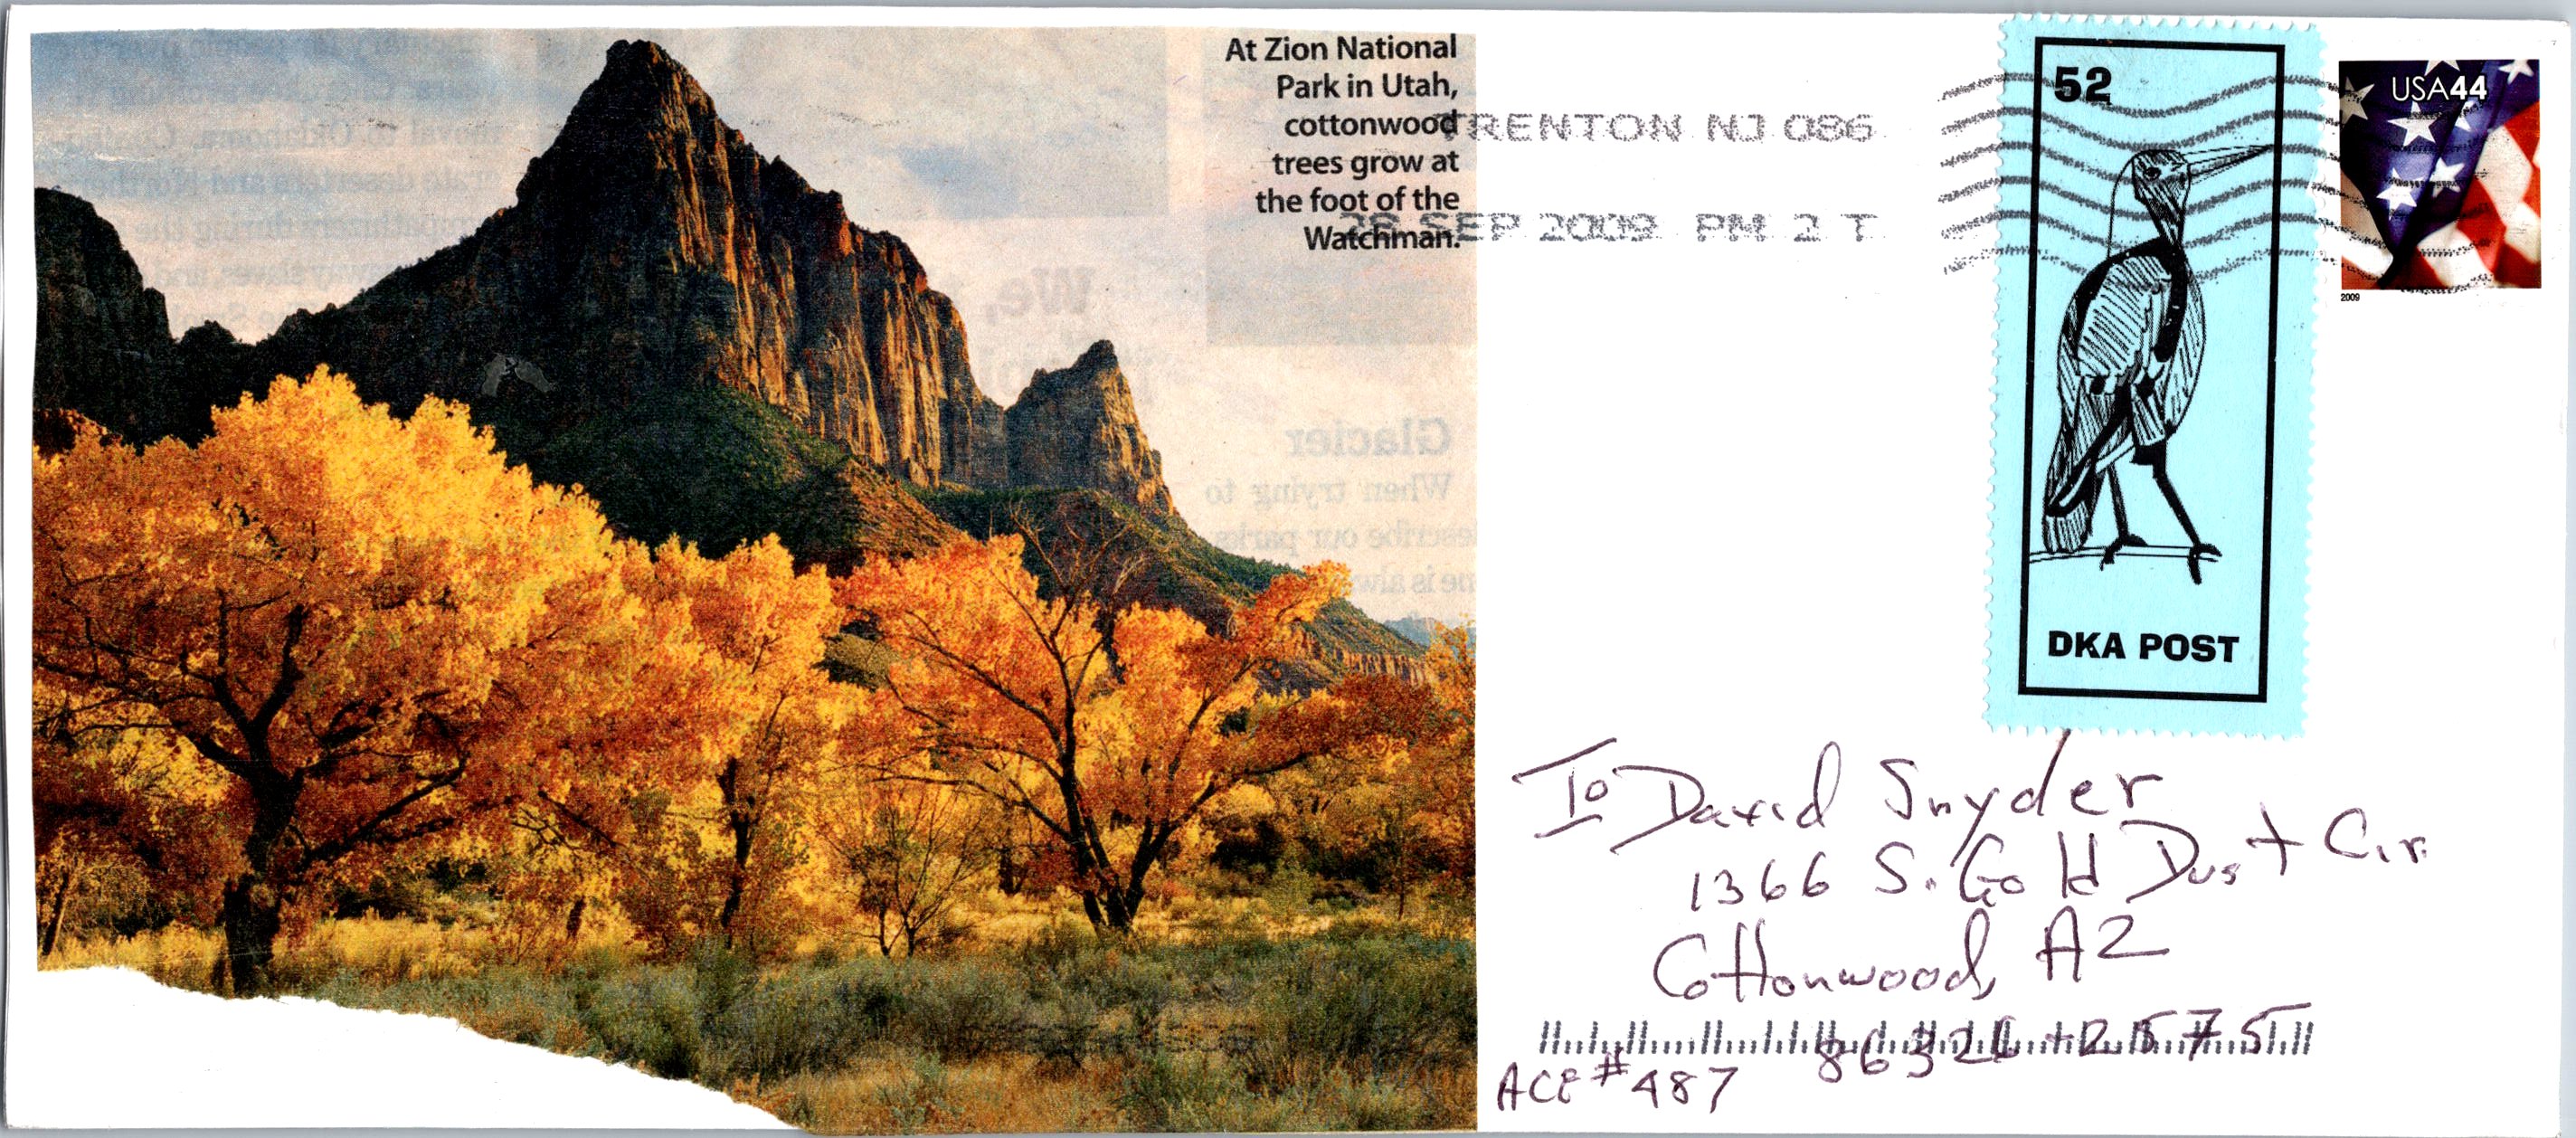 At Zion National
Park in Utah,
cottonwood
trees grow at
the foot of the
Watchman.
TRENTON NJ 086
28 SEP 2009 PM 2 T
52
DKA POST
USA44
2009
To David Snyder
1366 S. Gold Dust Cir.
Cottonwood, AZ
86326+2575
ACE #487
We,
Glacier
When trying to
describe our parks,